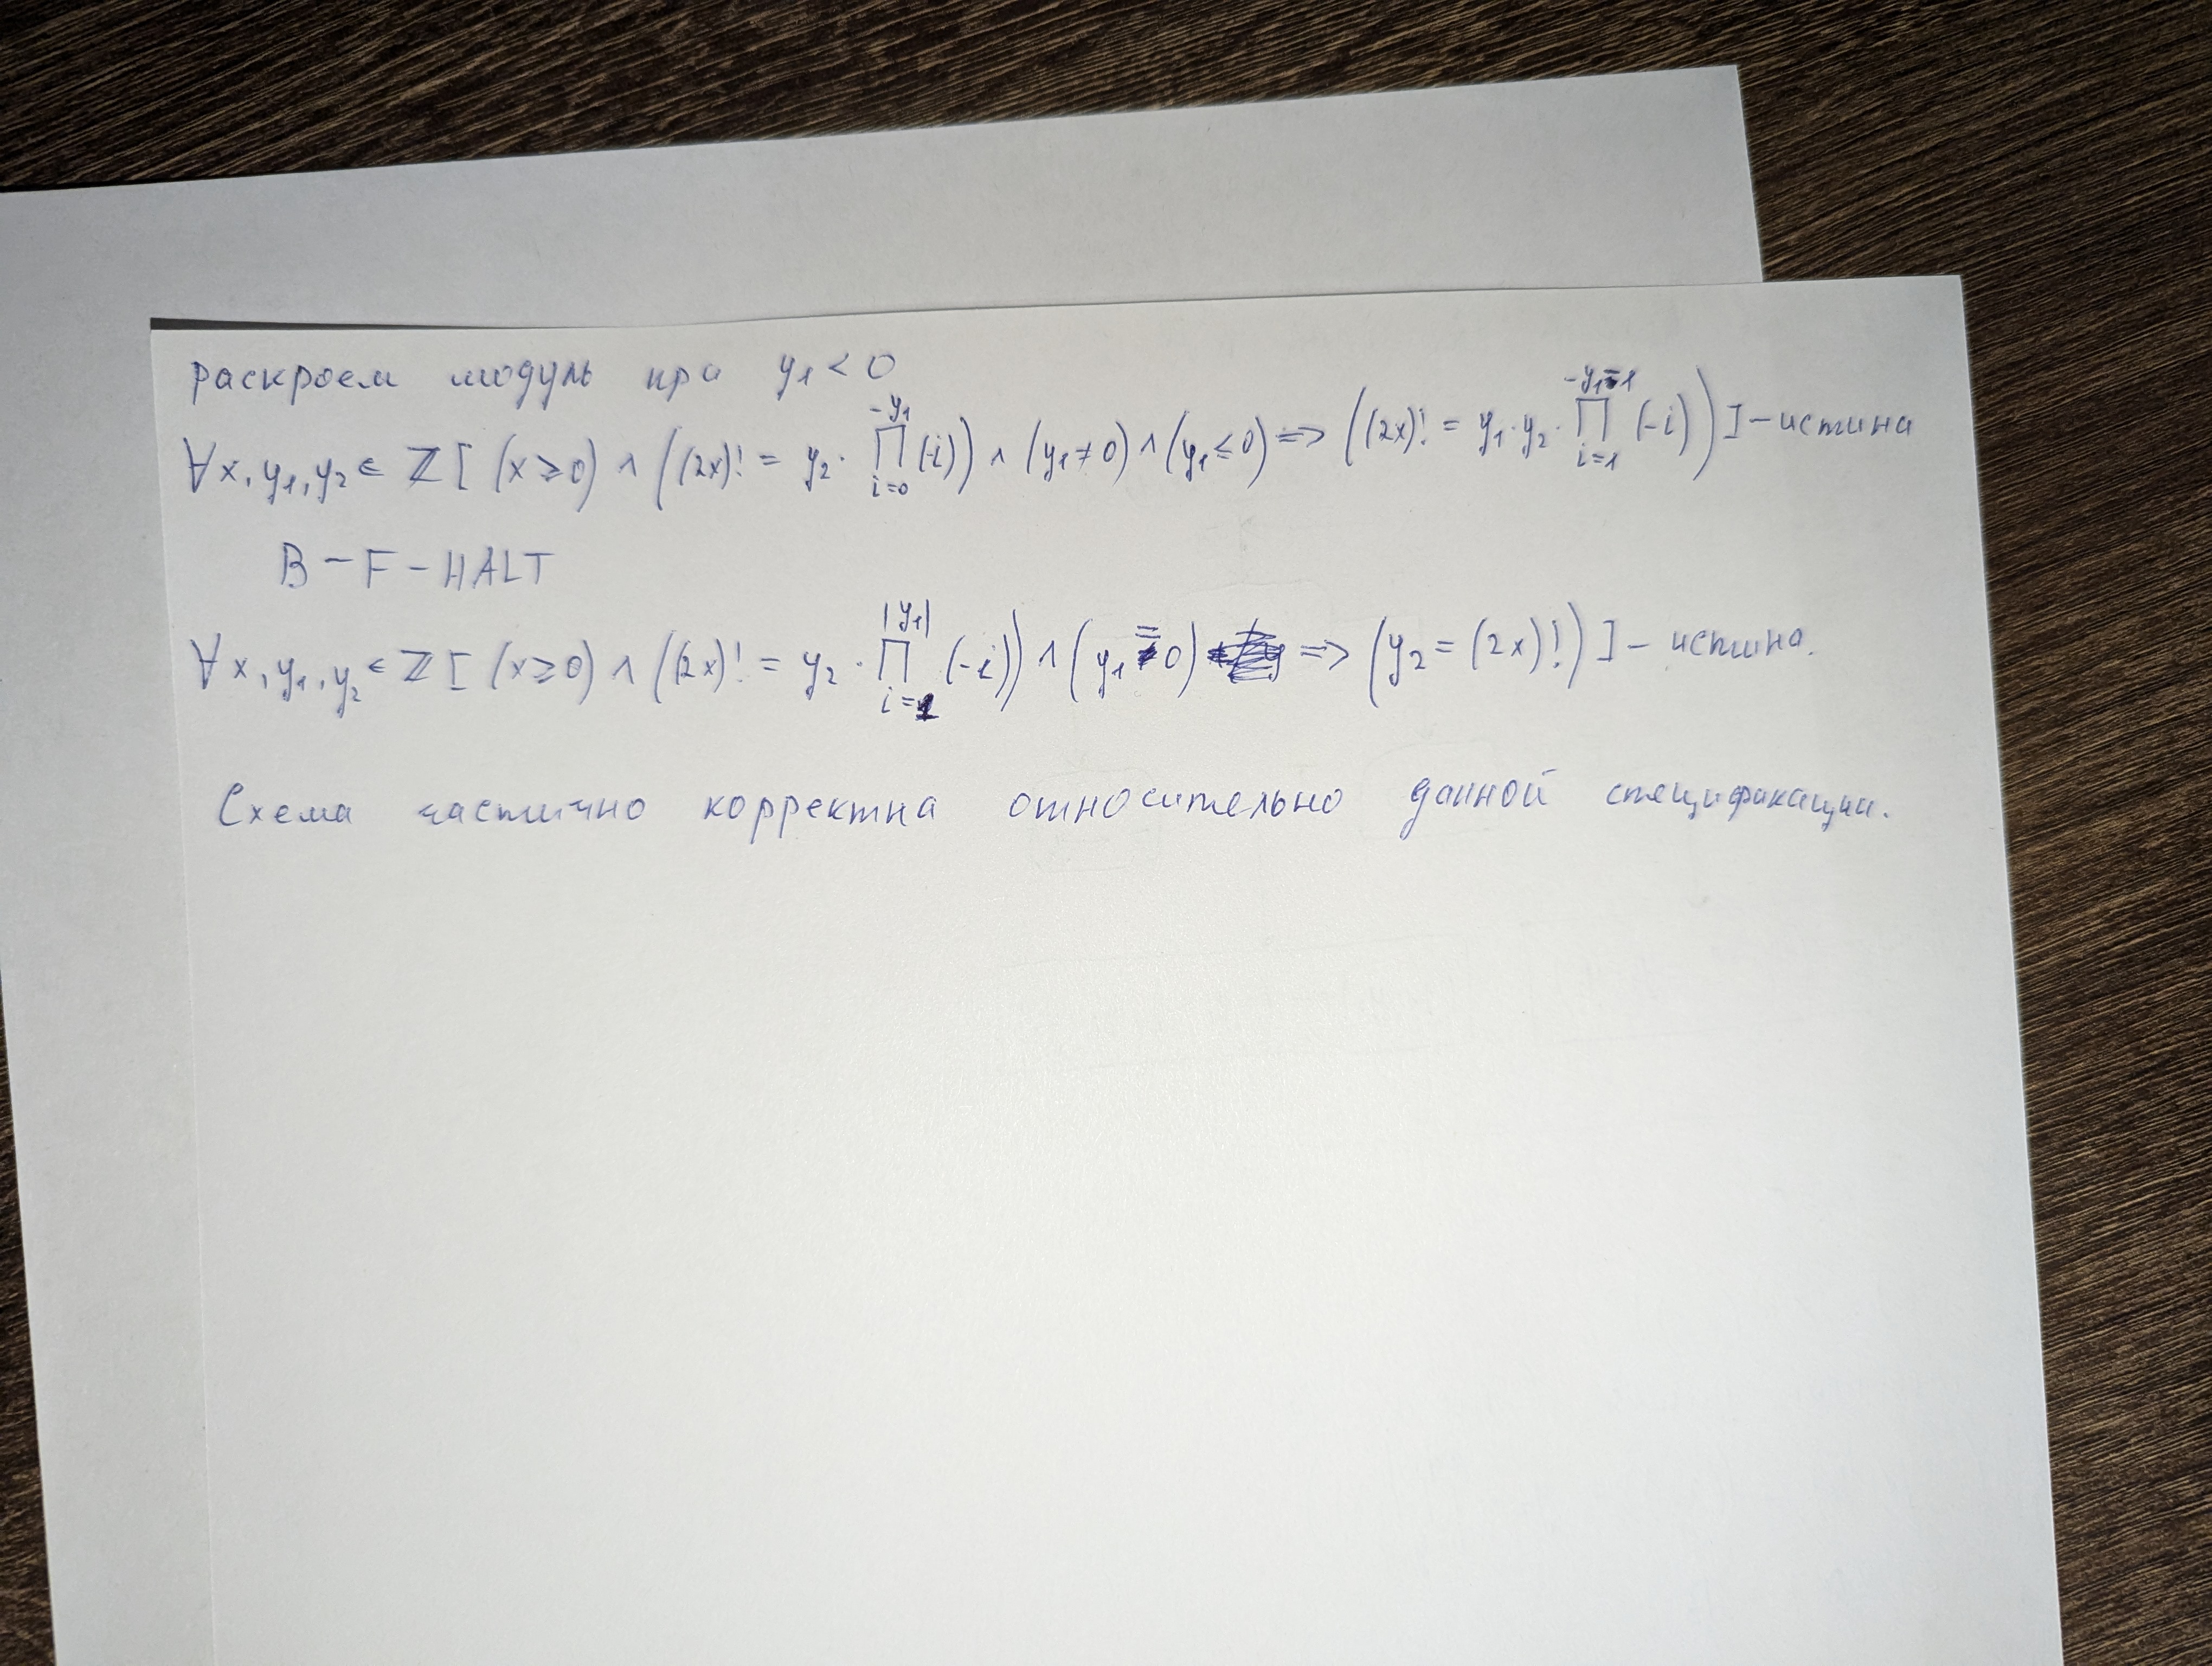 раскроем модуль при y₁ < 0
∀x, y₁, y₂ ∈ ℤ [ (x ≥ 0) ∧ ((2x)! = y₂ · ∏_{i=0}^{-y₁} (-i)) ∧ (y₁ ≠ 0) ∧ (y₁ ≤ 0) => ((2x)! = y₁ · y₂ · ∏_{i=1}^{-y₁-1} (-i)) ] - истина
B - F - HALT
∀x, y₁, y₂ ∈ ℤ [ (x ≥ 0) ∧ ((2x)! = y₂ · ∏_{i=1}^{|y₁|} (-i)) ∧ (y₁ = 0) => (y₂ = (2x)!) ] - истина.
Схема частично корректна относительно данной спецификации.